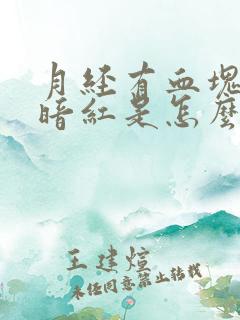 月经有血块
暗红是怎么
王建煊
未经同意禁止转载